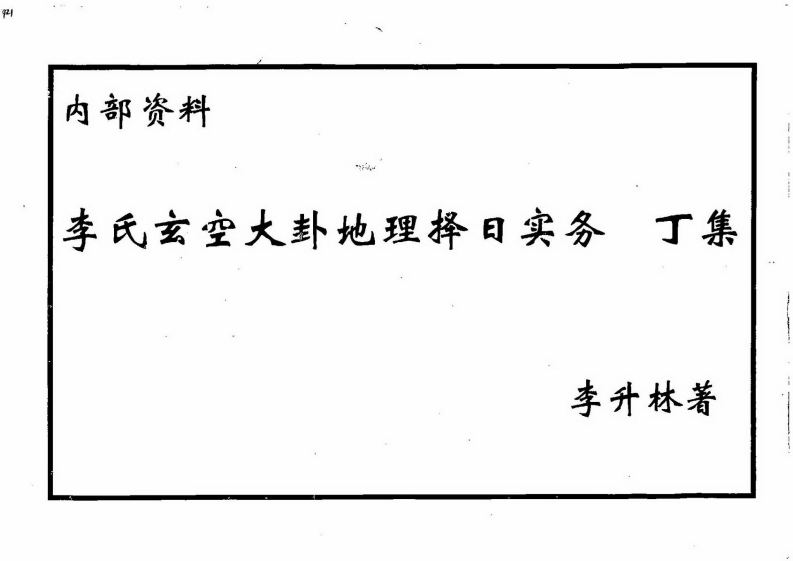 内部资料
李氏玄空大卦地理择日实务 丁集
李升林著